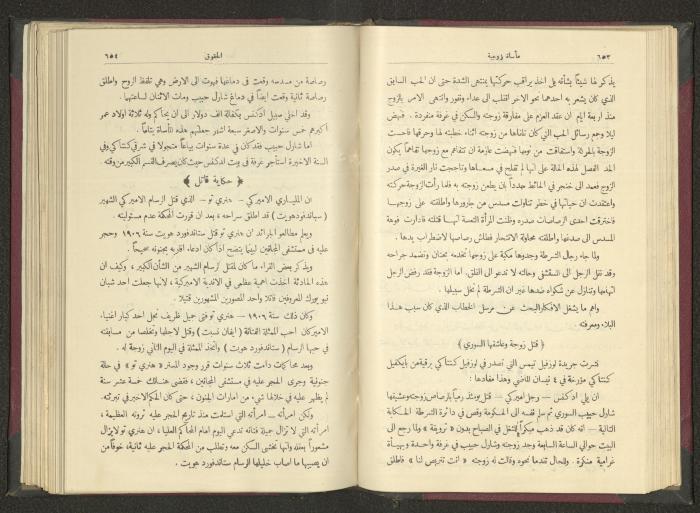 ٦٥٣ مأساة زوجية
يذكر لها شيئاً بشأنه بل اخذ يراقب حركتها بمنتهى الشدة حتى ان الحب السابق
الذي كان يشعر به احدهما نحو الاخر انقلب الى عداء ونفور وانتهى الامر بالزوج
منذ اربعة ايام ان عقد العزم على مفارقة زوجته والسكن في غرفة منفردة . فنهض
ليلا وجمع رسائل الحب التي كان نالها من زوجته اثناء خطبته لها وحرقها فاحست
الزوجة بالحركة واستفاقت من نومها فنهضت عازمة ان تتفاهم مع زوجها تفاهماً يكون
الحد الفصل لهذه الحالة على انها لم تفلح في مسعاها وتاججت نار الغيرة في صدر
الزوج فعمد الى خنجر في الحائط مهدداً بان يطعن زوجته به فلما رأت الزوجة حركته
واعتقدت ان حياتها في خطر تناولت مسدس من جارورها واطلقته على زوجها
فاخترقت احدى الرصاصات صدره وظنت المرأة التعسة انها قتلته فادارت فوهة
المسدس الى صدغها واطلقته محاولة الانتحار فطاش رصاصها لاضطراب يدها .
ولما جاء رجال الشرطة وجدوها مكبة على زوجها تخدمه بحنان وتضمد جراحه
وقد نقل الرجل الى المستشفى وحالته لا تدعو الى القلق . اما الزوجة فقد رفض الرجل
اتهامها وتنازل عن شكواه ضدها غير ان الشرطة لم تخل سبيلها .
واهم ما يشغل الافكار البحث عن مرسل الخطاب الذي كان سبب هذا
البلاء ومعرفته .
﴿ قتل زوجة وعاشقها السوري ﴾
نشرت جريدة لوزفيل تيمس التي تصدر في لوزفيل كنتاكي برقية من بايكفيل
كنتاكي مؤرخة في ٤ نيسان الماضي وهذا مفادها :
ان يلي ادكنس — رجل اميركي — قتل يومئذ رمياً بالرصاص زوجته وعشيقها
شارل حبيب السوري ثم سلم نفسه الى الحكومة وقص في دائرة الشرطة الحكاية
التالية — انه كان قد ذهب مبكراً للشغل في الصباح بدون « ترويقة » ولما رجع الى
البيت حوالي الساعة السابعة وجد زوجته وشارل حبيب في غرفة واحدة وبهيأة
غرامية منكرة . وللحال تقدما نحوه وقالت له زوجته « انت تتربص لنا » فاطلق
الحقوق ٦٥٤
رصاصة من مسدسه وقعت في دماغها فهوت الى الارض وهي تلفظ الروح واطلق
رصاصة ثانية وقعت ايضاً في دماغ شارل حبيب ومات الاثنان لساعتهما .
وقد اخلي سبيل ادكنس بكفالة الف دولار الى ان يحاكم وله ثلاثة اولاد عمر
اكبرهم خمس سنوات والاصغر سبعة اشهر جعلتهم هذه المأساة يتامى .
اما شارل حبيب فقد كان في عدة سنوات بياعاً متجولا في شرقي كنتاكي وفي
السنة الاخيرة استأجر غرفة في بيت ادكنس حيث كان يصرف القسم الكبير من وقته .
﴿ حكاية قاتل ﴾
ان المليـاري الاميركي — هنري ثو — الذي قتل الرسام الاميركي الشهير
( ستاندفورد هويت ) قد اطلق سراحه ، بعد ان قررت المحكمة عدم مسئوليته .
ويعلم مطالعو الجرائد ان هنري ثو قتل ستاندفورد هويت سنة ١٩٠٦ وحجر
عليه في مستشفى المجانين ليبنما يتضح اذا كان ادعاء اقربه بجنونه صحيحاً .
ويذكر بعض القراء ما كان لمقتل الرسام الشهير من الشأن الكبير ، وكيف ان
هذه الحادثة اتخذت اهمية عظمى في الاندية الاميركية ، لانها جعلت احد شبان
نيويورك المعروفين قاتلا واحد المصورين المشهورين قتيلا .
وكان ذلك سنة ١٩٠٦ — هنري ثو فتى جميل ظريف نجل احد كبار اغنياء
الاميركان احب الممثلة الفتاتة ( ايفان نسبت ) وقتل لاجلها وتخلصا من مسابقته
في حبها الرسام ( ستاندفورد هويت ) واتخذ الممثلة في اليوم الثاني زوجة له .
وبعد محاكمات دامت ثلاث سنوات قرر وجود المستر « ثو » في حالة
جنونية وجرى الحجر عليه في مستشفى المجانين ، فقضى هنـالك خمسة عشر سنة
لم يظهر عليه في خلالها شيء من امارات الجنون ، حتى كان الحكم الاخير في تبرئته .
ولكن امرأته — امرأته التي استلمت منذ تاريخ الحجر عليه ثروته العظيمة ،
امرأته التي لا تزال جميلة فتانه تدعي اليوم امام المحاكم العليا ، ان هنري ثو لا يزال
مشعوراً بعقله وانها تخشى السكن معه وتطلب من المحكمة الحجر عليه ثانية ، خوفاً من
ان يصيبها ما اصاب خليلها الرسام ستاندفورد هويت .